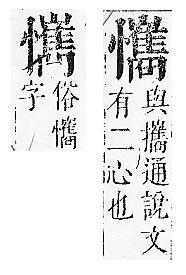 與攜通說文
有二心也
俗
字